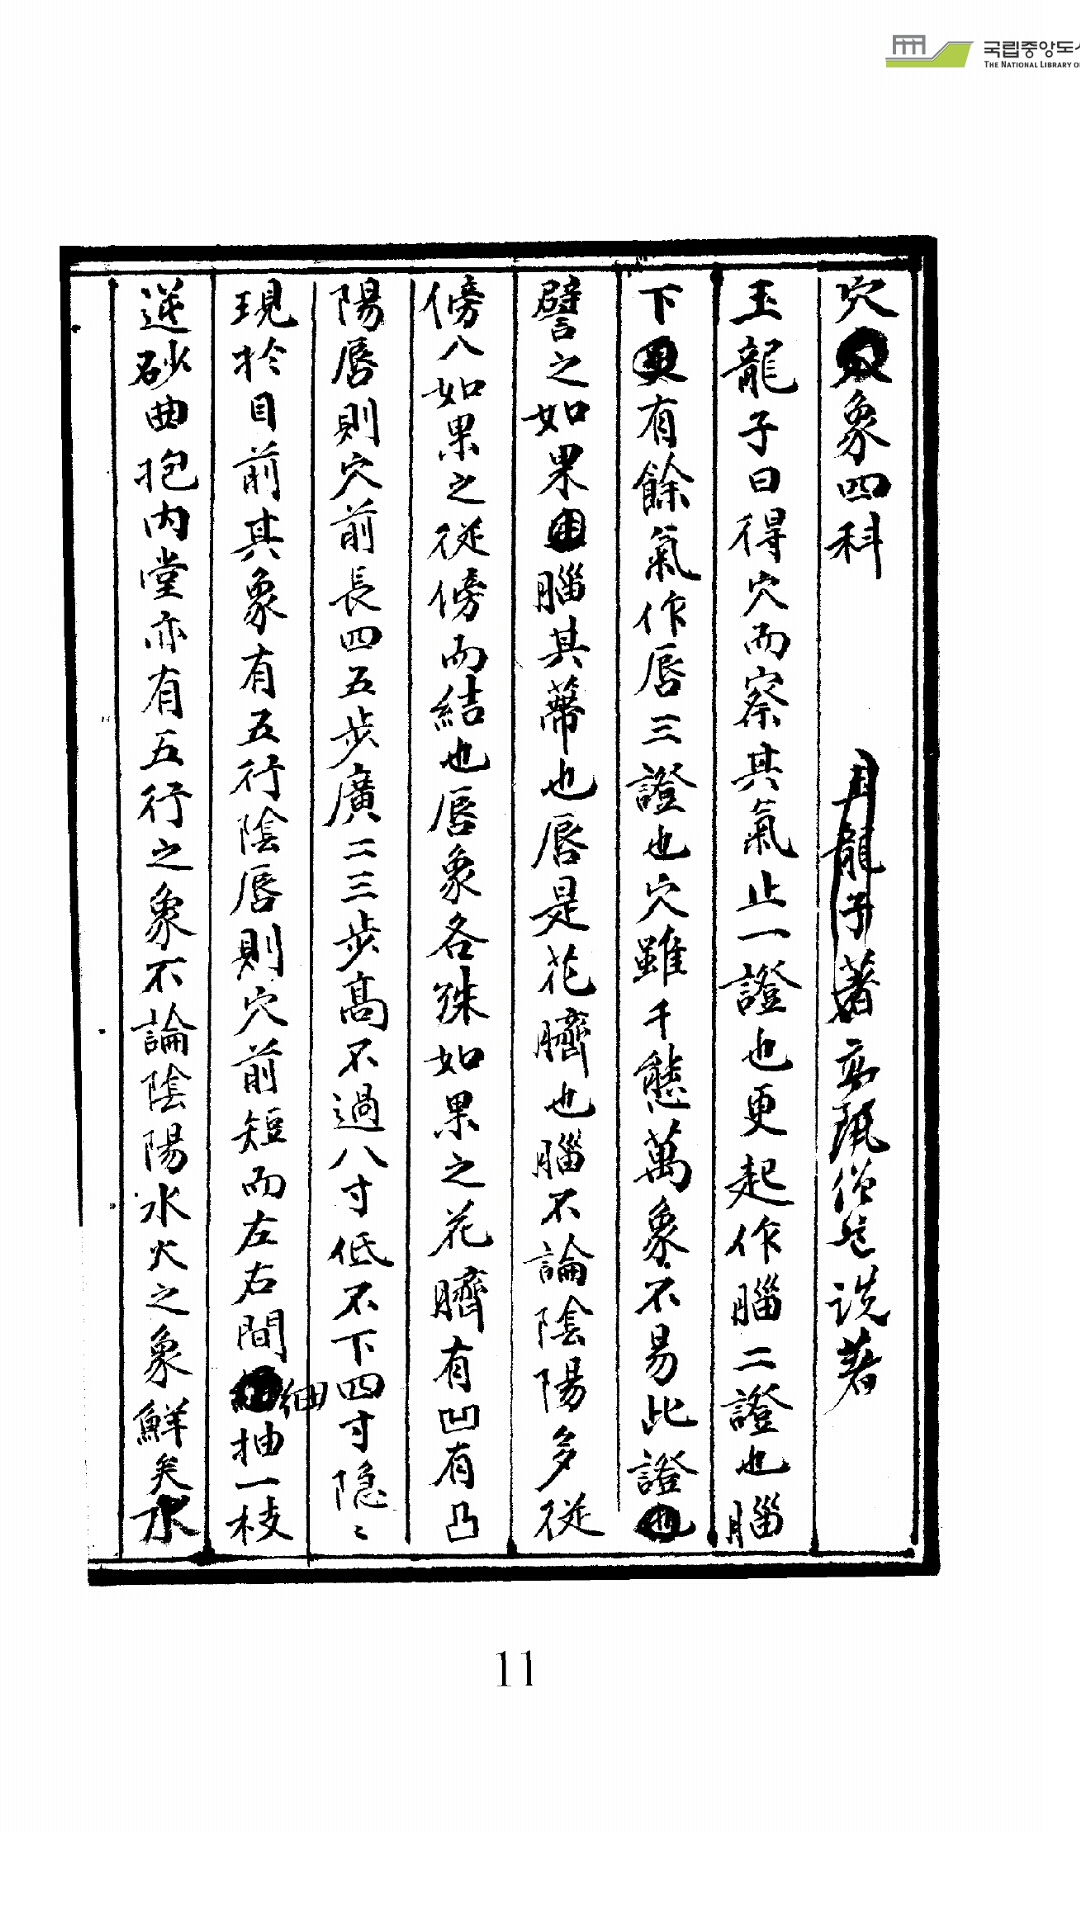 국립중앙도서
THE NATIONAL LIBRARY OF
穴象四科 玉龍子著 高 僧 說著
玉龍子曰得穴而察其氣止一證也更起作腦二證也腦
下有餘氣作唇三證也穴雖千態萬象不易此證
譬之如果腦其蔕也唇是花臍也腦不論陰陽多從
傍入如果之從傍而結也唇象各殊如果之花臍有凹有凸
陽唇則穴前長四五步廣二三步高不過八寸低不下四寸隐〻
現於目前其象有五行陰唇則穴前短而左右間細抽一枝
逆砂曲抱内堂亦有五行之象不論陰陽水火之象鮮矣水
11